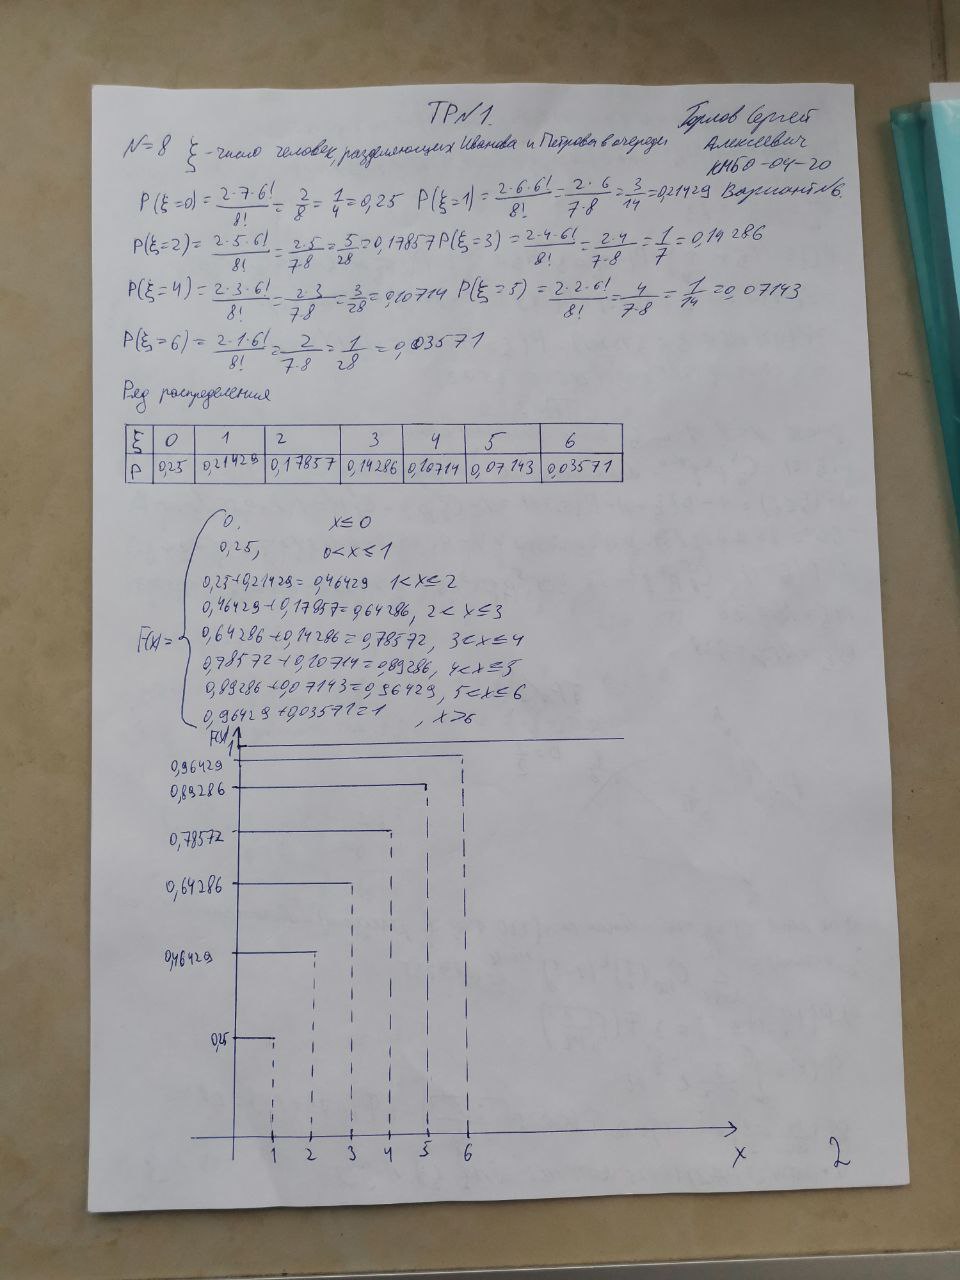 ТР№1.
Горлов Сергей
Алексеевич
КМБО-04-20
Вариант №6.
N=8 ξ - число человек, разделяющих Иванова и Петрова в очереди
P(ξ=0) = 2·7·6!/8! = 2/8 = 1/4 = 0,25 P(ξ=1) = 2·6·6!/8! = 2·6/7·8 = 3/14 = 0,21429
P(ξ=2) = 2·5·6!/8! = 2·5/7·8 = 5/28 = 0,17857 P(ξ=3) = 2·4·6!/8! = 2·4/7·8 = 1/7 = 0,14286
P(ξ=4) = 2·3·6!/8! = 2·3/7·8 = 3/28 = 0,10714 P(ξ=5) = 2·2·6!/8! = 4/7·8 = 1/14 = 0,07143
P(ξ=6) = 2·1·6!/8! = 2/7·8 = 1/28 = 0,03571
Ряд распределения
ξ 0 1 2 3 4 5 6
P 0,25 0,21429 0,17857 0,14286 0,10714 0,07143 0,03571
0, x≤0
0,25, 0<x≤1
0,25+0,21429=0,46429 1<x≤2
0,46429+0,17857=0,64286, 2<x≤3
F(x)= 0,64286+0,14286=0,78572, 3<x≤4
0,78572+0,10714=0,89286, 4<x≤5
0,89286+0,07143=0,96429, 5<x≤6
0,96429+0,03571=1, x>6
F(x)
1
0,96429
0,89286
0,78572
0,64286
0,46429
0,25
1 2 3 4 5 6 x
2